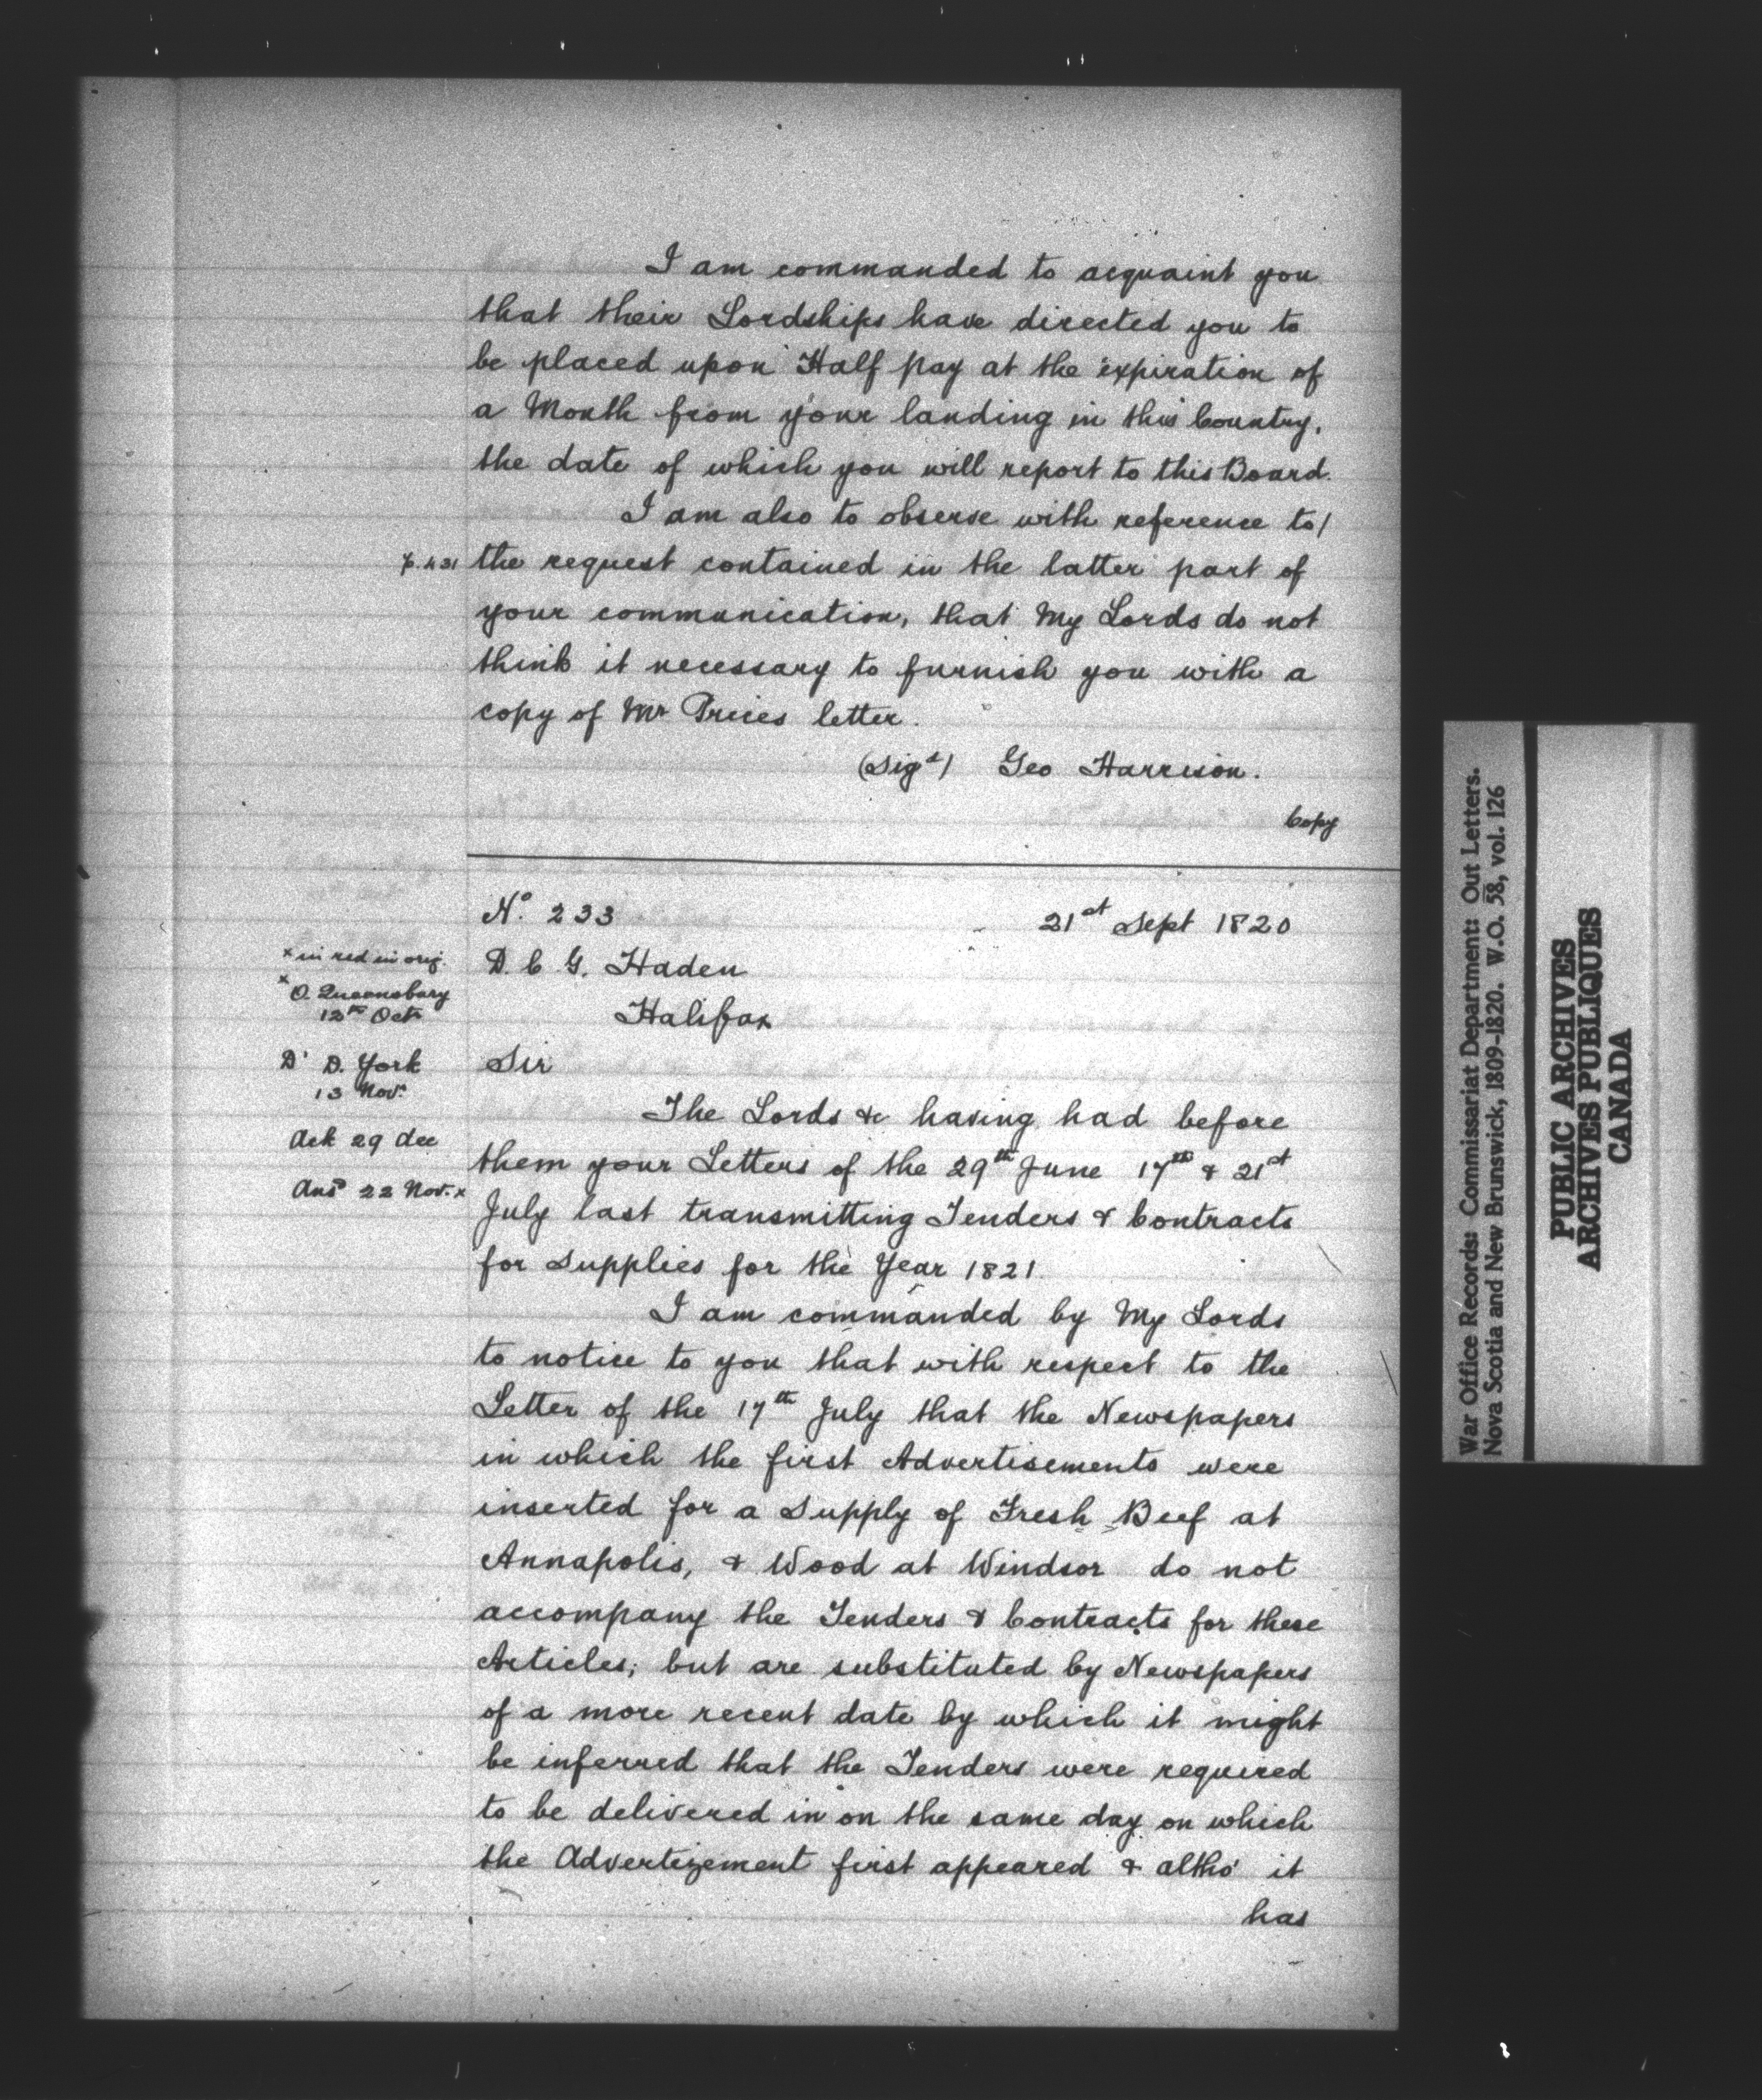 I am commanded to acquaint you
that their Lordships have directed you to
be placed upon Half pay at the expiration of
a Month from your landing in this Country,
the date of which you will report to this Board.
I am also to observe with reference to/
p. 431
the request contained in the latter part of
your communication, that My Lords do not
think it necessary to furnish you with a
copy of Mr Prices letter.
(Sigd) Geo Harrison.
Copy
No. 233
21st Sept 1820
x in red in orig.
D. C. G. Haden
x O. Queensbury
12th Oct
Halifax
Do D. York
13 Nov.
Sir
Ack 29 dec
Ansd 22 Nov. x
The Lords &c having had before
them your Letters of the 29th June 17th & 21st
July last transmitting Tenders & Contracts
for Supplies for the Year 1821
I am commanded by My Lords
to notice to you that with respect to the
Letter of the 17th July that the Newspapers
in which the first Advertisements were
inserted for a Supply of Fresh Beef at
Annapolis, & Wood at Windsor do not
accompany the Tenders & Contracts for these
Articles; but are substituted by Newspapers
of a more recent date by which it might
be inferred that the Tenders were required
to be delivered in on the same day on which
the Advertizement first appeared & altho' it
has
War Office Records: Commissariat Department: Out Letters.
Nova Scotia and New Brunswick, 1809-1820. W.O. 58, vol. 126
PUBLIC ARCHIVES
ARCHIVES PUBLIQUES
CANADA